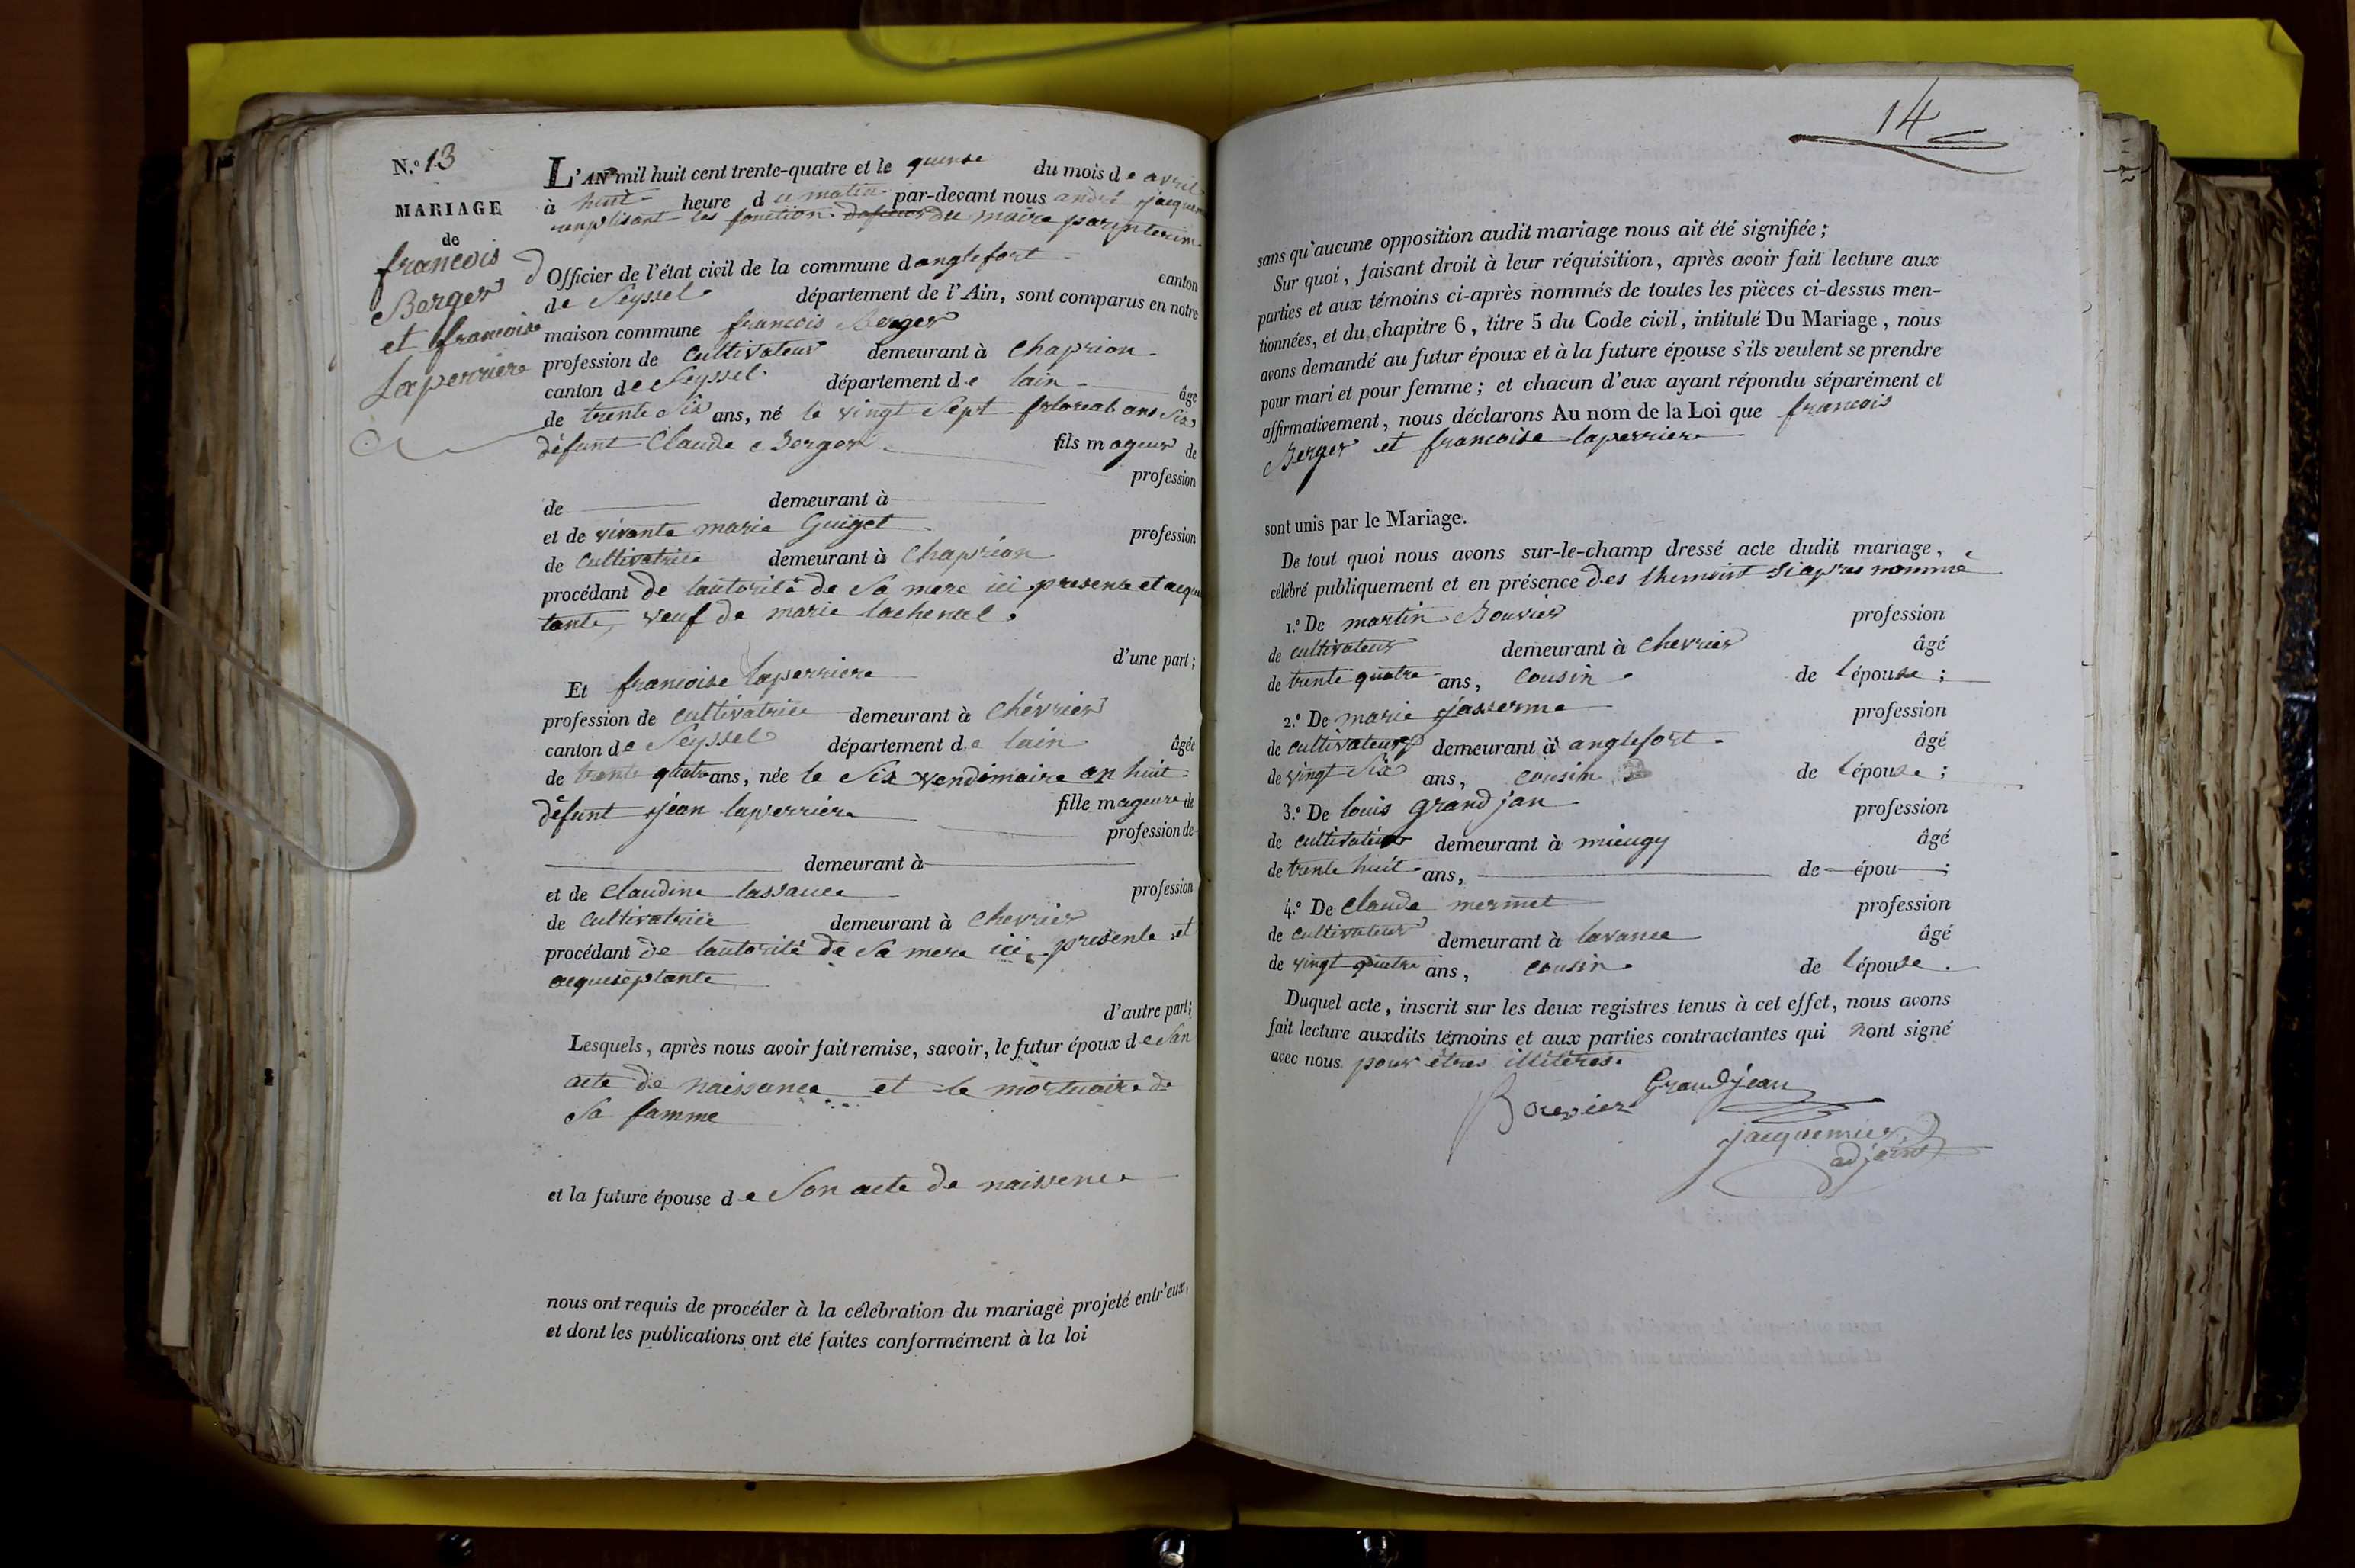 N.° 13
MARIAGE
de
francois
Berger
et francoise
Laperriere
L'AN mil huit cent trente-quatre et le quinse du mois de avril
à huit heure du matin par-devant nous andré jacquem
remplisant les fonction du maire parinterim
Officier de l'état civil de la commune danglefort canton
de Seyssel département de l'Ain, sont comparus en notre
maison commune francois Berger
profession de Cultivateur demeurant à Chaprion
canton de Seyssel département de lain âgé
de trente Six ans, né le vingt Sept floreal ans Six
fils mageur de
défunt Claude Berger
profession
de demeurant à
et de vivante marie Guiget profession
de Cultivatrice demeurant à Chaprion
procédant de lautorité de Sa mere ici presente et acque
tante, veuf de marie lachenal.
d'une part;
Et francoise laperriere
profession de cultivatrice demeurant à Chévrier
canton de Seyssel département de lain âgée
de trente quatre ans, née le Six vendimaire an huit
fille mageure de
défunt jean laperriere
profession de
demeurant à
et de Claudine lassauce profession
de Cultivatrice demeurant à Chevrier
procédant de lautorité de Sa mere ici presente et
acqueseptante
d'autre part;
Lesquels, après nous avoir fait remise, savoir, le futur époux de San
acte de naissance et le mortuaire de
Sa famme
et la future épouse de Son acte de naissence
nous ont requis de procéder à la célébration du mariage projeté entr'eux,
et dont les publications ont été faites conformément à la loi
14
sans qu'aucune opposition audit mariage nous ait été signifiée;
Sur quoi, faisant droit à leur réquisition, après avoir fait lecture aux
parties et aux témoins ci-après nommés de toutes les pièces ci-dessus men-
tionnées, et du chapitre 6, titre 5 du Code civil, intitulé Du Mariage, nous
avons demandé au futur époux et à la future épouse s'ils veulent se prendre
pour mari et pour femme; et chacun d'eux ayant répondu séparément et
affirmativement, nous déclarons Au nom de la Loi que francois
Berger et francoise laperriere
sont unis par le Mariage.
De tout quoi nous avons sur-le-champ dressé acte dudit mariage,
célébré publiquement et en présence des themoint Siapres nommé
1.° De martin Bouvier profession
de cultivateur demeurant à Chevrier âgé
de trente quatre ans, Cousin de lépouse;
2.° De marie jasserme profession
de cultivateur demeurant à anglefort âgé
de vingt Six ans, cousin de lépouse;
3.° De louis grand jan profession
de cultivateur demeurant à mieugy âgé
de trente huit ans, de épou ;
4.° De Claude mermet profession
de cultivateur demeurant à lavanee âgé
de vingt quatre ans, cousin de lépouse.
Duquel acte, inscrit sur les deux registres tenus à cet effet, nous avons
fait lecture auxdits témoins et aux parties contractantes qui nont signé
avec nous pour êtres illitéres.
Bouvier Grandjean
jacquemier
adjoint